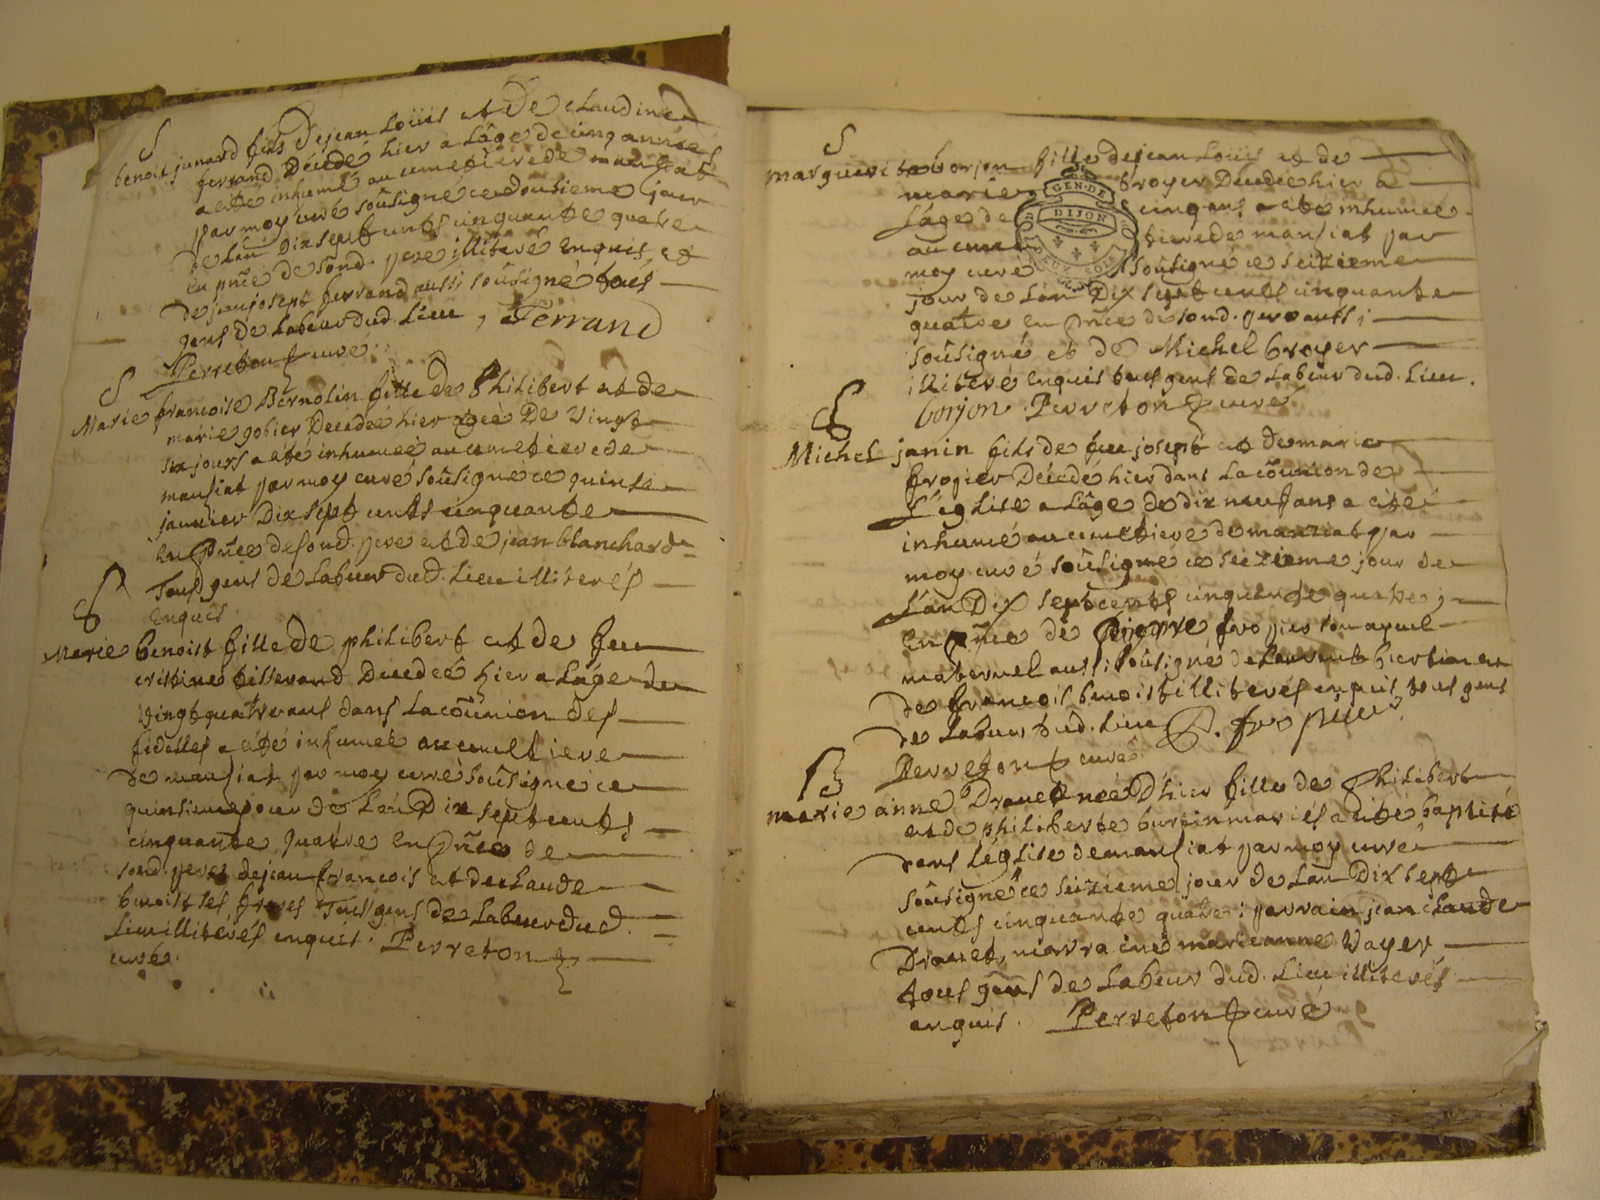 S
benoit junard fils de jean Loüis et de claudine
ferrand Décédé hier a Lâge de cinq années
a esté inhumé au cimetiere de mansiat
par moy curé soûsigné ce douzieme jour
de L'an Dix sept cents cinquante quatre
en pñce de sond. pere illiteré enquis, et
de jean josept ferrand aussi soûsigné tous
gens de Labeur dud. Lieu, Ferrand
Perreton curé
S
Marie francoise Bernolin fille de Philibert et de
marie gobier Décédée hier agée De vingt
six jours a été inhumée au cimetiere de
mansiat par moy curé soûsigné ce quinze
janvier Dix sept cents cinquante
en pñce de sond. pere et de jean blanchard
Tous gens de Labeur dud. Lieu illiterés
enquis
S
Marie benoist fille de philibert et de feu
cristine tisserand Décédée hier a Lâge de
vingt quatre ans dans La coûnion des
fidelles a été inhumée au cimetiere
de mansiat par moy curé soûsigné ce
quinsieme jour de L'an Dix sept cents
cinquante quatre en pñce de
sond. pere, de jean francois et de claude
benoist ses freres Tous gens de Labeur dud.
Lieu illiterés enquis. Perreton
curé.
S
marguerite borjon fille de jean Loüis et de
marie broyer Décédée hier a
Lâge de cinq ans a été inhumée
au cime tiere de mansiat par
moy curé soûsigné ce seizieme
jour de L'an Dix sept cents cinquante
quatre en pñce de sond. pere aussi
soûsigné et de Michel broyer
illiteré enquis tous gens de Labeur dud. Lieu.
borjon. Perreton curé
GEN. DE
DIJON
S
Michel janin fils de feu josept et de marie
fropier Décédé hier dans La coûnion de
L'église a Lâge de dix neuf ans a été
inhumé au cimetiere de manziat par
moy curé soûsigné ce seizieme jour de
L'an Dix sept cents cinquante quatre,
en pñce de pierre fropier son ayeul
maternel aussi soûsigné de Laurent
de francois benoist illiterés enquis tous gens
de Labeur dud. Lieu P. fropier
Perreton curé
B
marie anne Drouet née D'hier fille de Philibert
et de philiberte burtin mariés a été baptisé
dans L'église de mansiat par moy curé
soûsigné ce seizieme jour de L'an Dix sept
cents cinquante quatre: parrain jean claude
Drouet, marraine marieanne Vayer
tous gens de Labeur dud. Lieu illiterés
enquis. Perreton curé